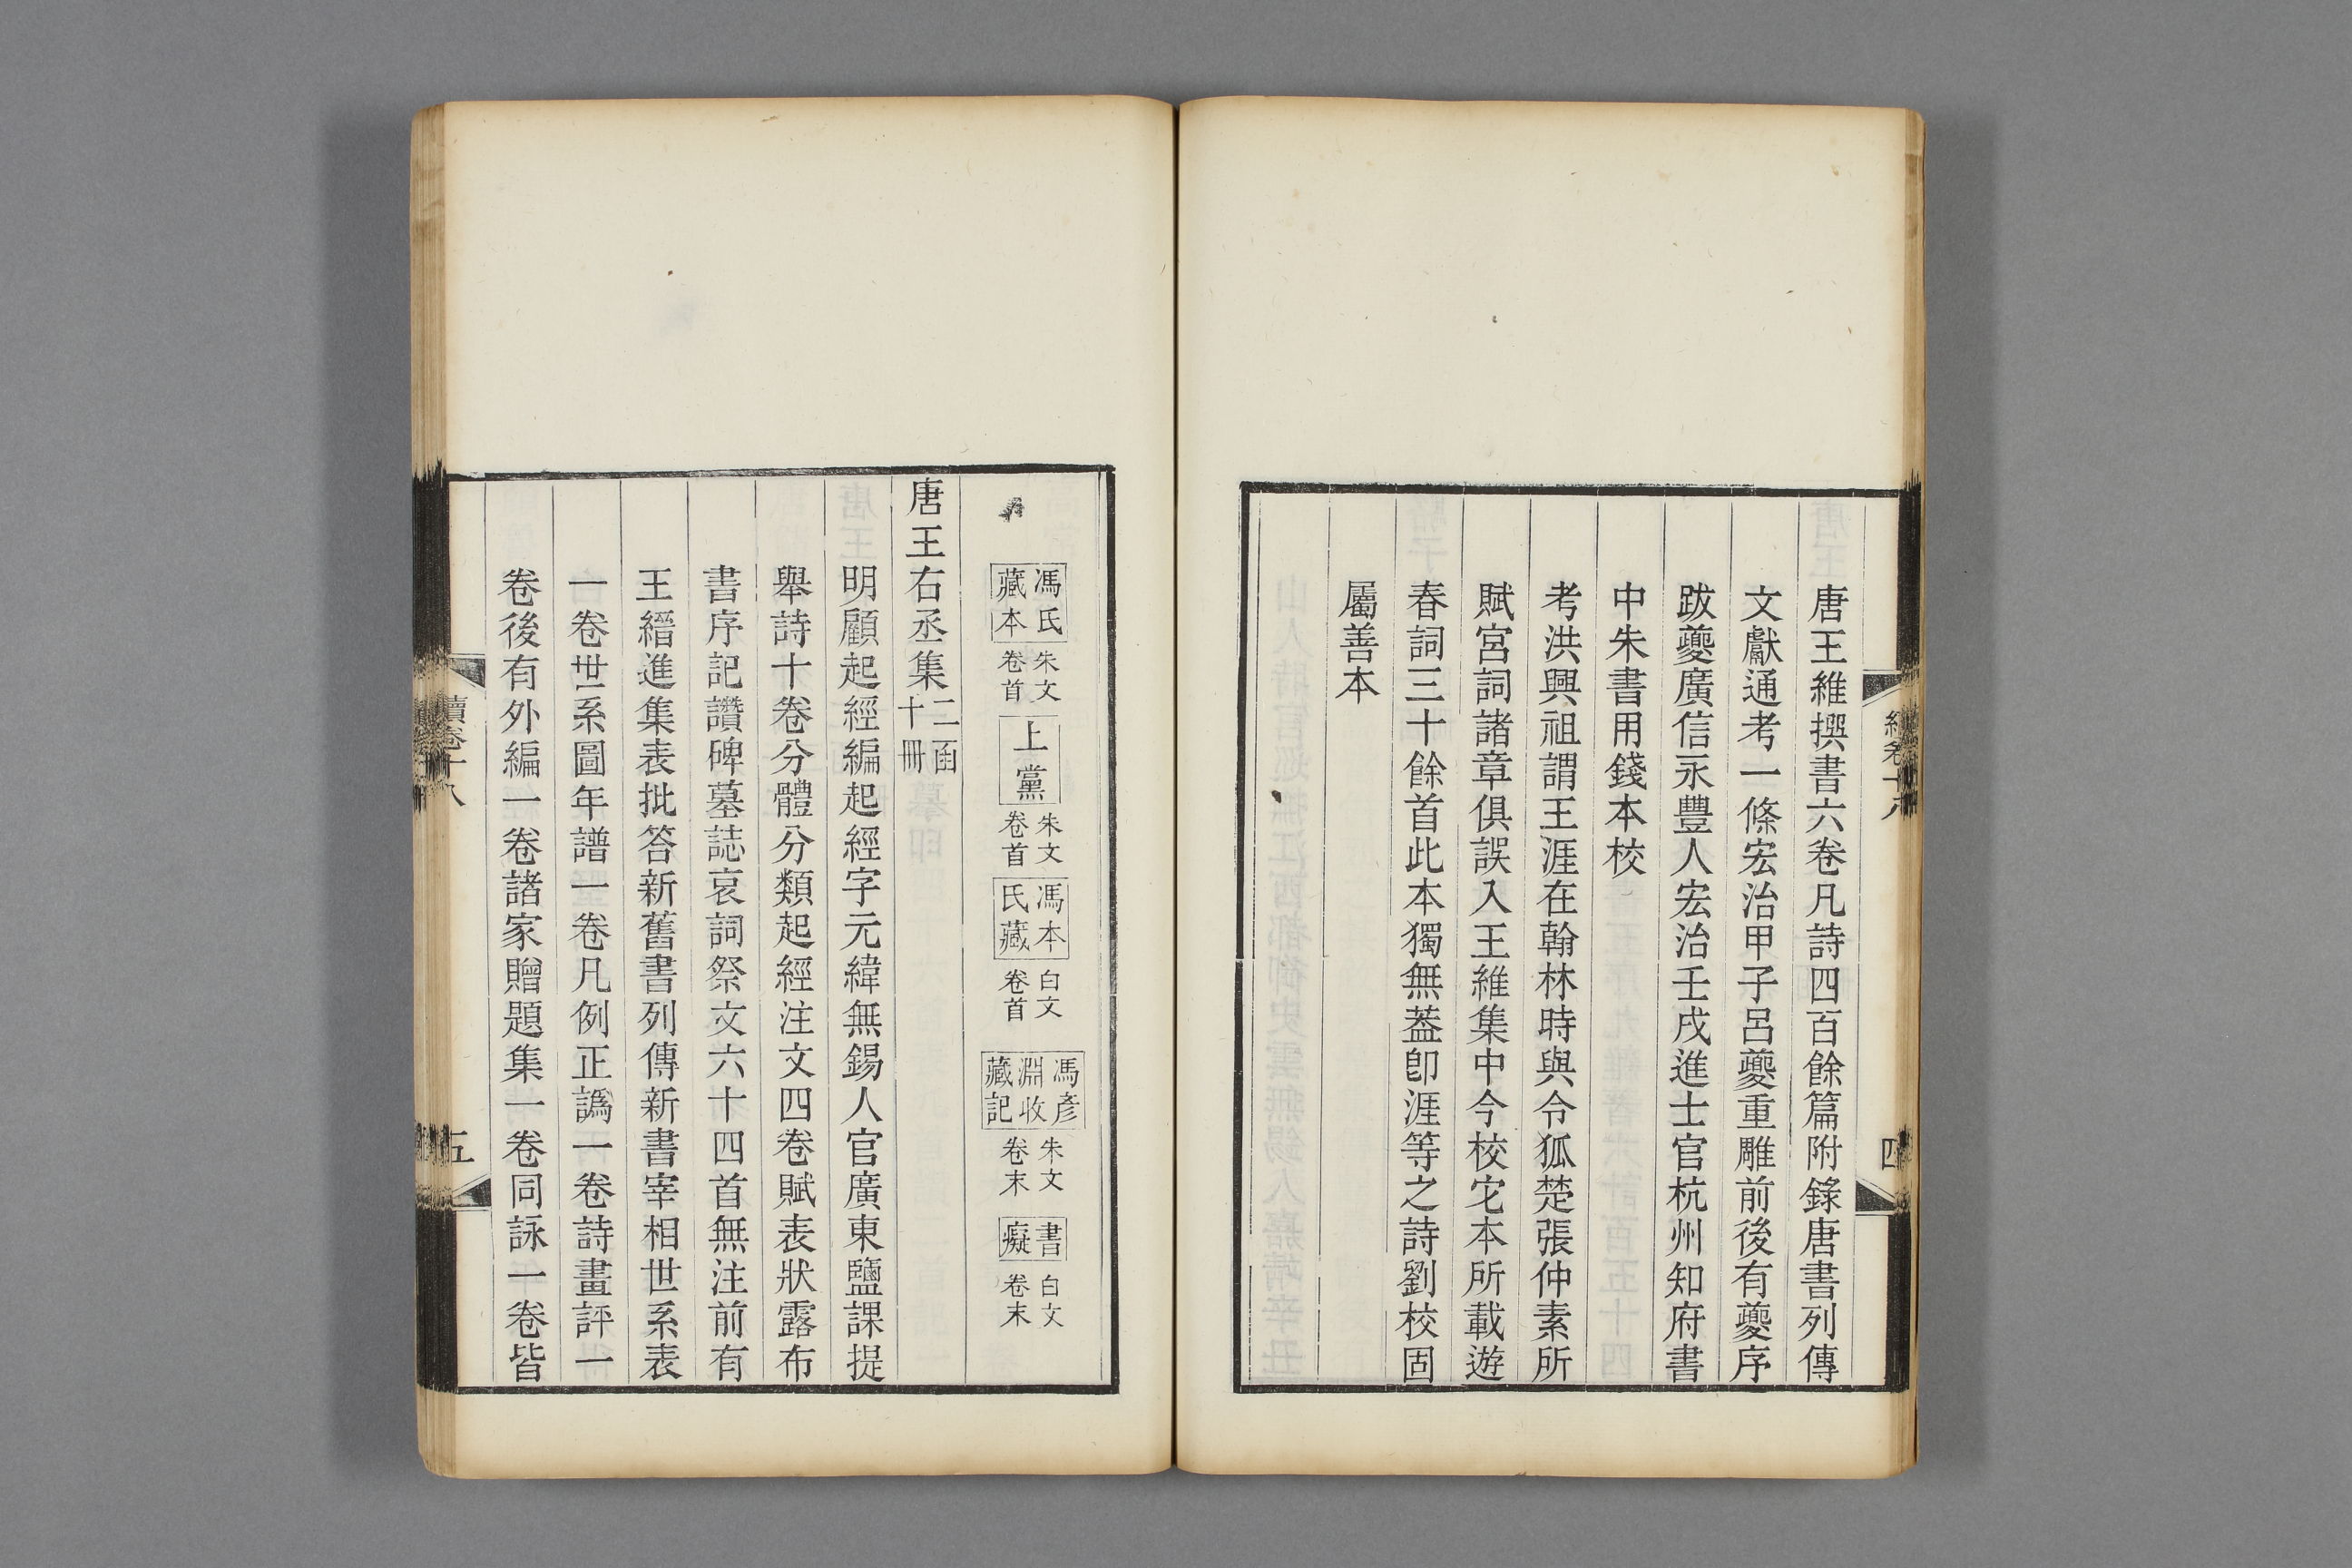 唐王維撰書六卷凡詩四百餘篇附錄唐書列傳
文獻通考一條宏治甲子呂夔重雕前後有夔序
跋夔廣信永豐人宏治壬戌進士官杭州知府書
中朱書用錢本校
考洪興祖謂王涯在翰林時與令狐楚張仲素所
賦宮詞諸章俱誤入王維集中今校宅本所載遊
春詞三十餘首此本獨無葢卽涯等之詩劉校固
屬善本
四
馮氏藏本
朱文卷首
上黨
朱文卷首
馮本氏藏
白文卷首
馮彥淵收藏記
朱文卷末
書癡
白文卷末
唐王右丞集二函十冊
明顧起經編起經字元緯無錫人官廣東鹽課提
舉詩十卷分體分類起經注文四卷賦表狀露布
書序記讚碑墓誌哀詞祭文六十四首無注前有
王縉進集表批答新舊書列傳新書宰相世系表
一卷世系圖年譜一卷凡例正譌一卷詩畫評一
卷後有外編一卷諸家贈題集一卷同詠一卷皆
續卷十八
五